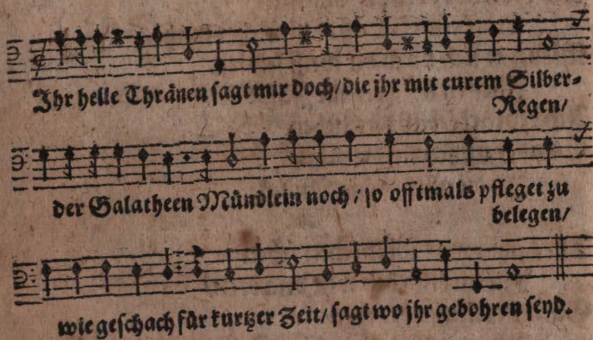 Ihr helle Thränen sagt mir doch/ die jhr mit eurem Silber-
Regen/
der Galatheen Mündlein noch/ so offtmals pfleget zu
belegen/
wie geschach für kurtzer Zeit/ sagt wo jhr gebohren seyd.